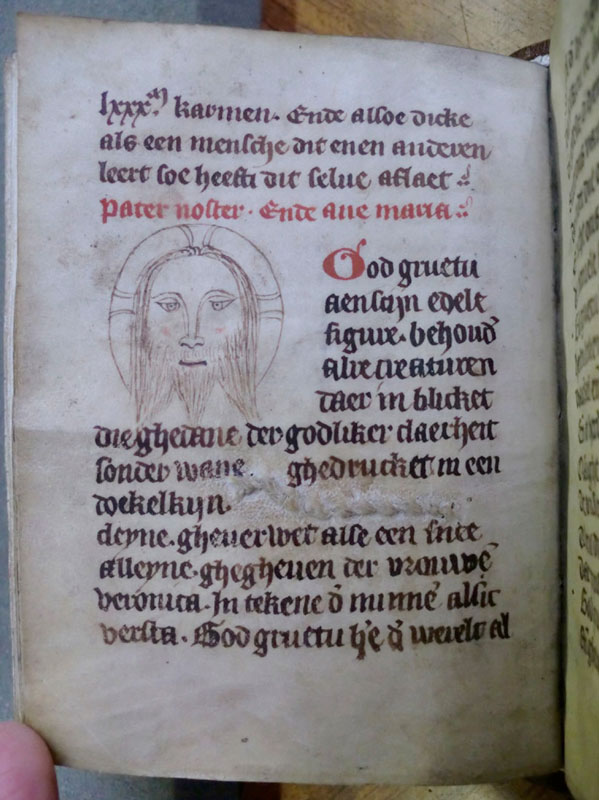 lxxx.m karinen. Ende alsoe dicke
als een mensche dit enen anderen
leert soe heeft dit selue aflaet
pater noster. Ende aue maria
God gruetu
aenscijn edele
figure. behoud'
alre creaturen
daer in blicket
die ghedane der godliker claerheit
sonder wane. ghedrucket in een
doekelkijn.
cleyne. gheuerwet alse een snee
alleyne. ghegheuen der vrouwē
veronica. In tekene d' minnē alsic
versta. God gruetu h'e d' werelt al